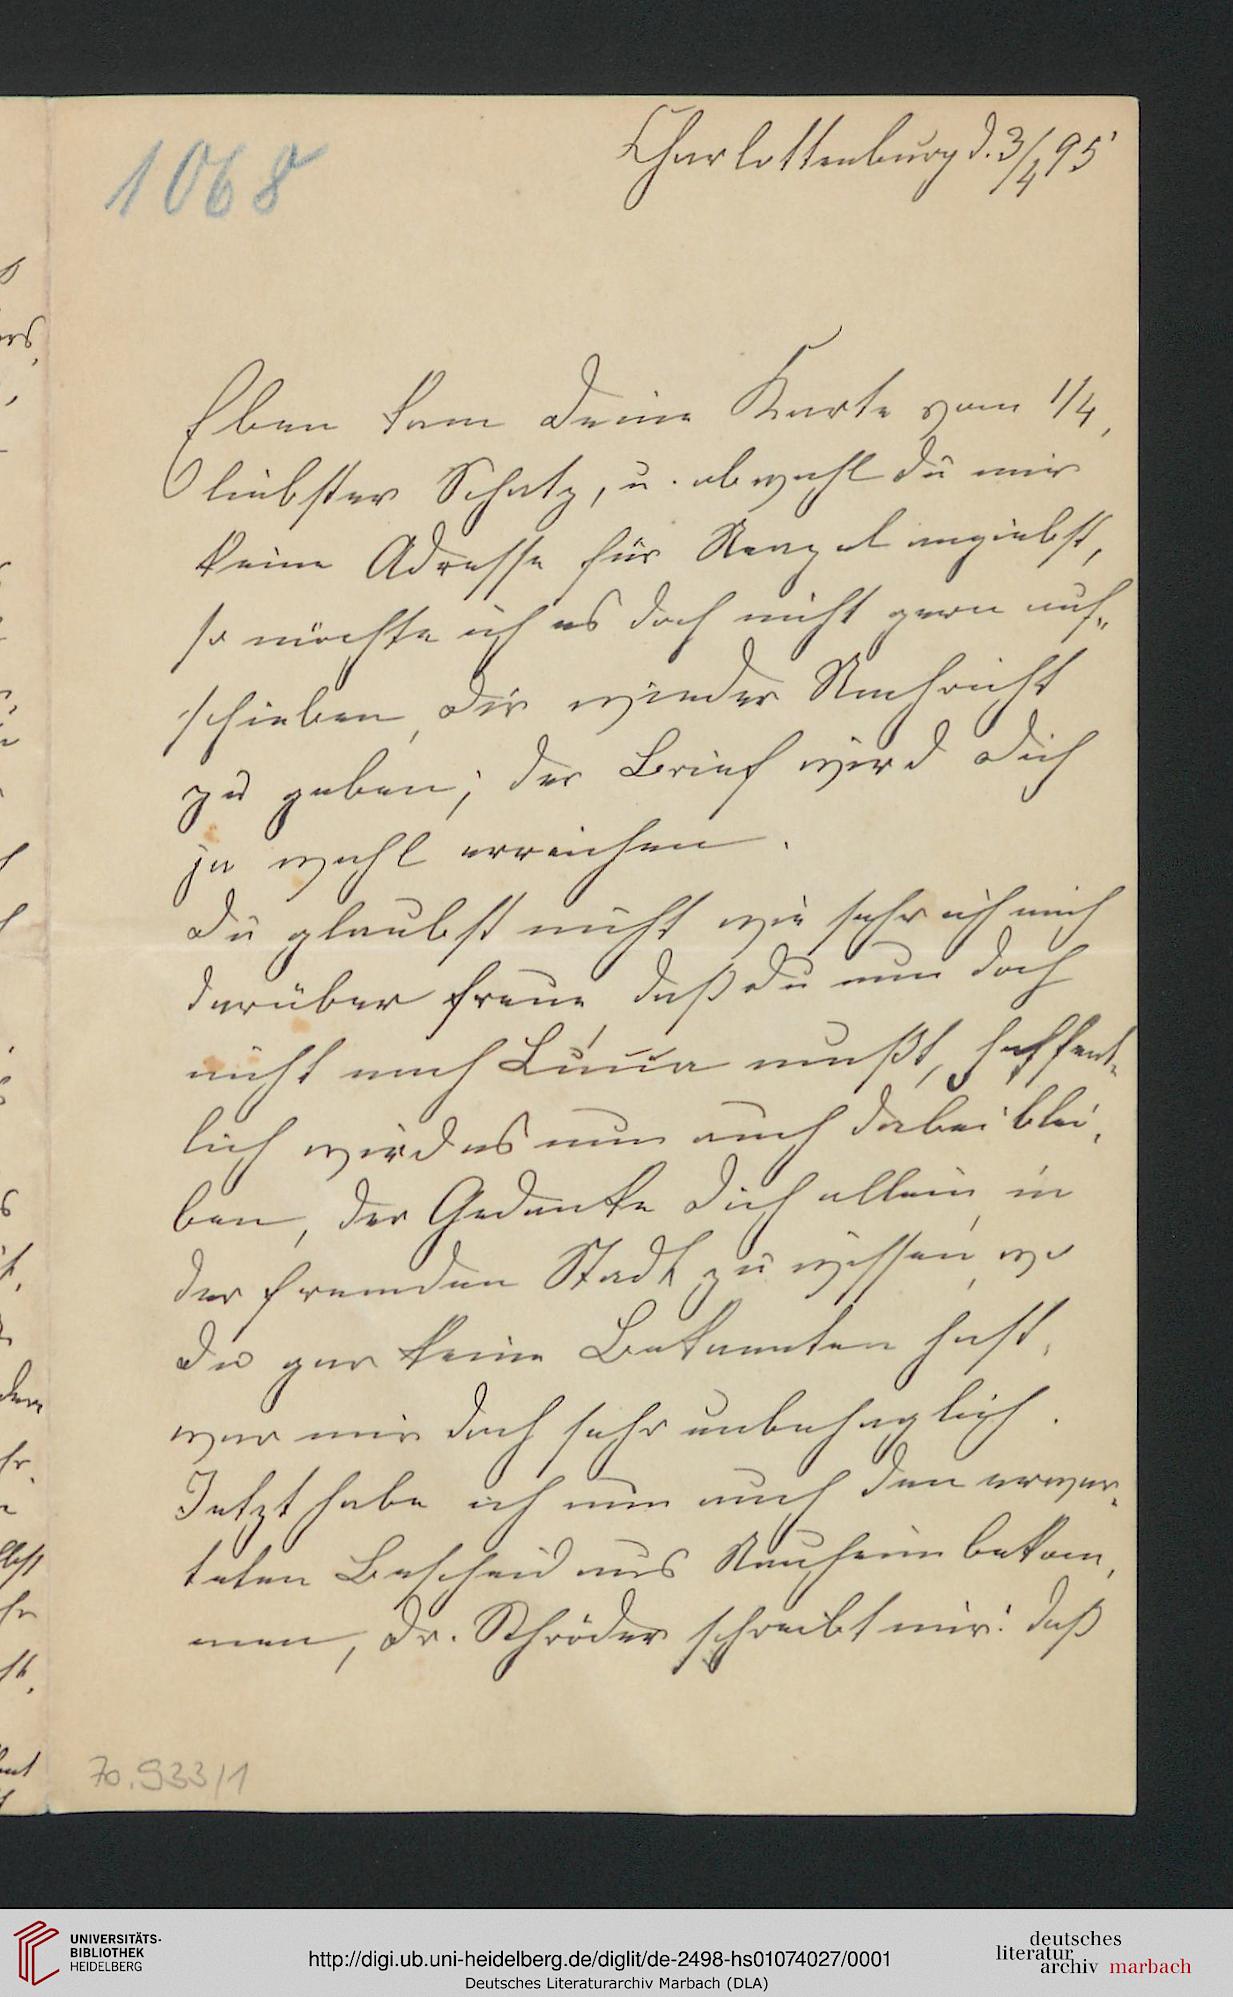 1068
Charlottenburg d. 3/4 95
Eben kam Deine Karte vom 1/4,
liebster Schatz, u. obwohl Du mir
keine Adresse für Neapel angiebst,
so möchte ich es doch nicht gern auf-
schieben, Dir wieder Nachricht
zu geben; der Brief wird Dich
ja wohl erreichen.
Du glaubst nicht wie sehr ich mich
darüber freue, daß Du nun doch
nicht nach mußt, hoffent-
lich wird es nun auch dabei blei-
ben, der Gedanke Dich allein in
der fremden Stadt zu wissen, wo
Du gar keine Bekannten hast,
war mir doch sehr unbehaglich.
Jetzt habe ich nun auch den erwar-
teten Bescheid aus Nauheim bekom-
men, Dr. Schröder schreibt mir: daß
70.933/1
UNIVERSITÄTS-
BIBLIOTHEK
HEIDELBERG
http://digi.ub.uni-heidelberg.de/diglit/de-2498-hs01074027/0001
Deutsches Literaturarchiv Marbach (DLA)
deutsches
literatur
archiv marbach